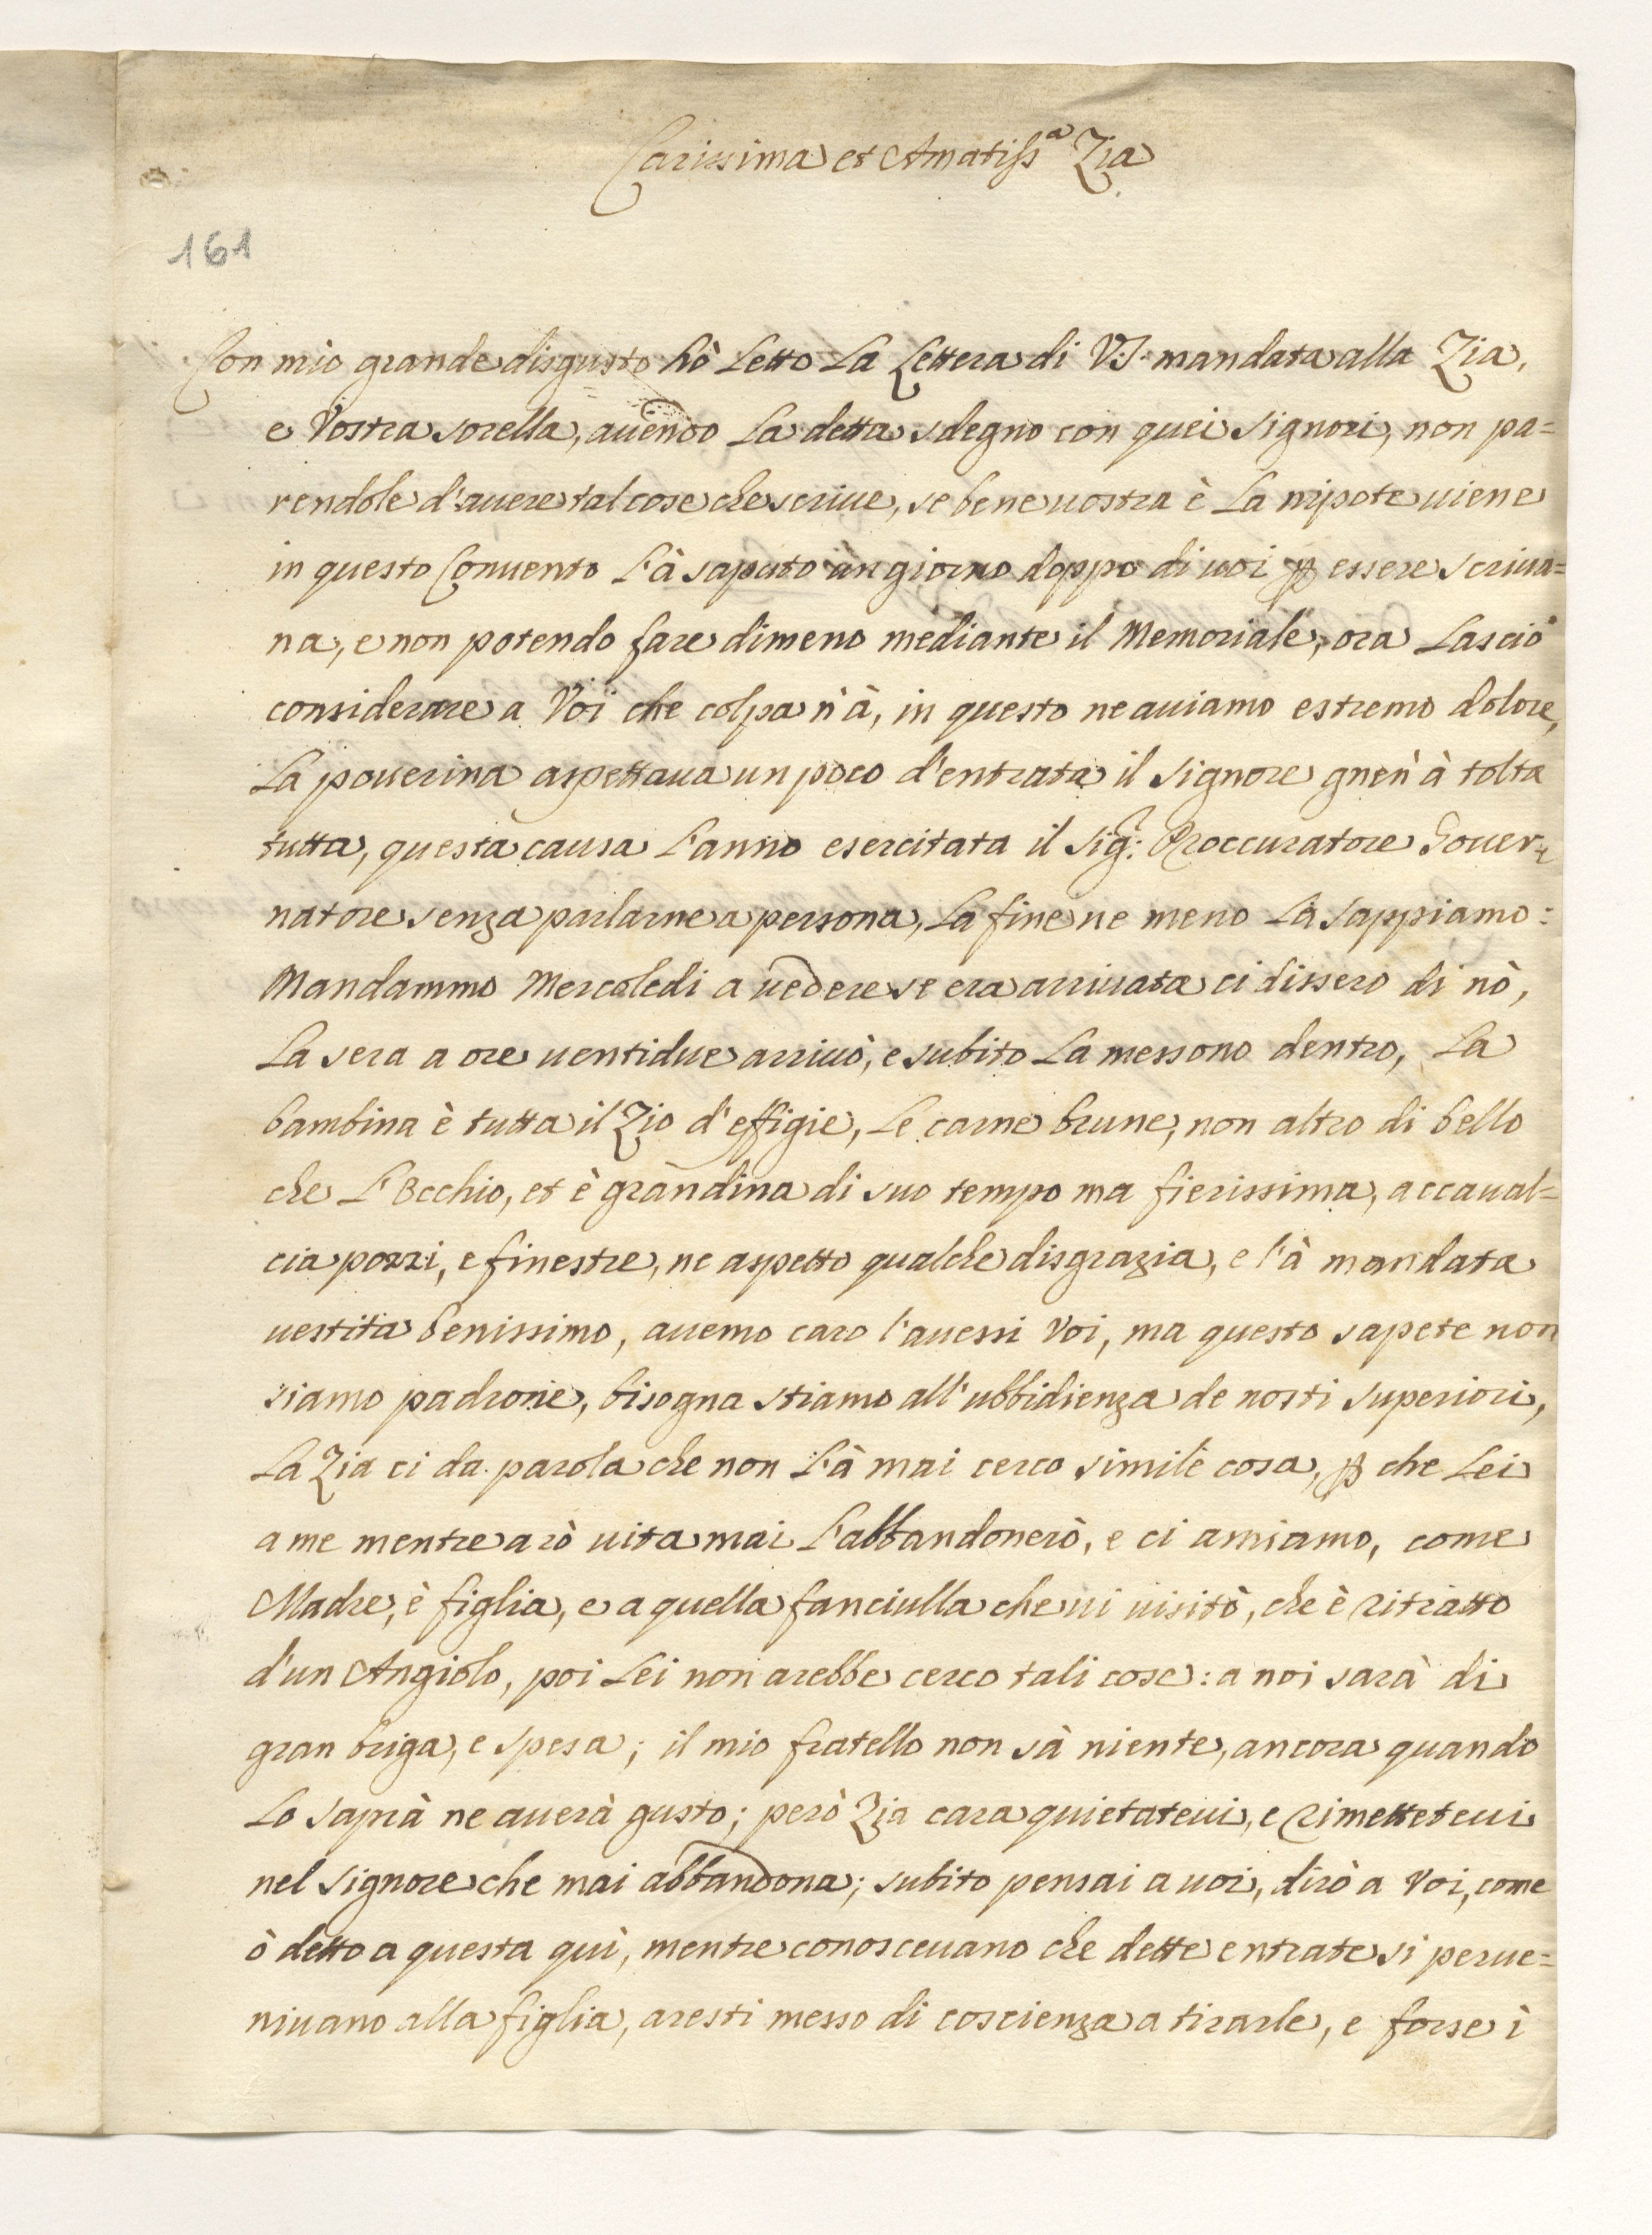 Carissima et Amatissᵃ Zia
161
Con mio grande disgusto hò Letto La Lettera di V.S. mandata alla Zia,
e Vostra sorella, auendo La detta sdegno con quei Signori, non pa=
rendole d'auere tal cose che scriue, se bene uostra è La nipote uiene
in questo Conuento L'à saputo un giorno doppo di uoi ꝑ essere scriua=
na, e non potendo fare dimeno mediante il Memoriale, ora Lascio
considerare a Voi che colpa n'à, in questo ne auiamo estremo dolore,
La pouerina aspettaua un poco d'entrata il Signore gnen'à tolta
tutta, questa causa L'anno esercitata il Sig.ʳ Proccuratore Gouer=
natore senza parlarne a persona, La fine ne meno La sappiamo:
Mandammo Mercoledi a uedere se era arriuata ci dissero di nò,
La sera a ore uentidue arriuò, e subito La messono dentro, La
bambina è tutta il Zio d'effigie, Le carne brune, non altro di bello
che L'Occhio, et è grandina di suo tempo ma fierissima, accaual=
cia pozzi, e finestre, ne aspetto qualche disgrazia, e l'à mandata
uestita benissimo, auemo caro l'auessi Voi, ma questo sapete non
siamo padrone, bisogna stiamo all'ubbidienza de nosti Superiori,
La Zia ci da parola che non L'à mai cerco simile cosa, ꝑ che Lei
a me mentre arò uita mai L'abbandonerò, e ci amiamo, come
Madre, è figlia, e a quella fanciulla che ui uisitò, che è ritratto
d'un Angiolo, poi Lei non arebbe cerco tali cose: a noi sarà di
gran briga, e spesa; il mio fratello non sà niente, ancora quando
Lo saprà ne auerà gusto; però Zia cara quietateui, e rimetteteui
nel Signore che mai abbandona; subito pensai a uoi, dirò a Voi, come
ò detto a questa quì, mentre conosceuano che dette entrate si perue=
niuano alla figlia, aresti messo di coscienza a tirarle, e forse i